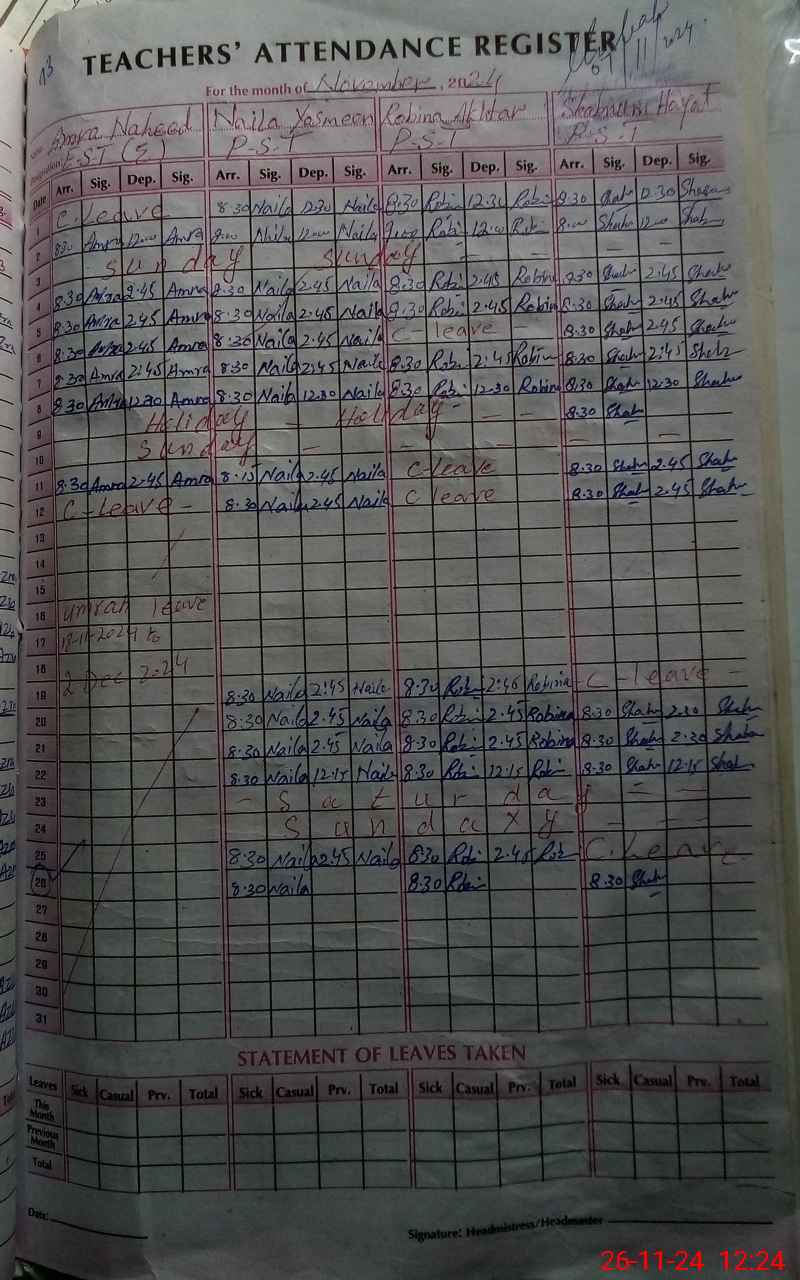 13
TEACHERS' ATTENDANCE REGISTER
11/2024
For the month of November, 2024
Name Amra Naheed Naila Yasmeen Robina Akhtar Shabnum Hayat
Designation E-ST (S) P-S-T P.S.T P.S.T
Date Arr. Sig. Dep. Sig. Arr. Sig. Dep. Sig. Arr. Sig. Dep. Sig. Arr. Sig. Dep. Sig.
1 C-Leave 8:30 Naila 12:30 Naila 8:30 Robi 12:30 Robi 8:30 Shab 12:30 Shabn
2 8:30 Amra 12:00 Amra 9:00 Naila 12:00 Naila 9:00 Robi 12:00 Robi 8:00 Shabn 12:00 Shab
3 Sunday Sunday - - - -
4 8:30 Amra 2:45 Amra 8:30 Naila 2.45 Naila 8:30 Robi 2:45 Robina 8:30 Shab 2:45 Shab
5 8:30 Amra 2.45 Amra 8:30 Naila 2.45 Naila 8:30 Robi 2.45 Robina 8:30 Shab 2.45 Shab
6 8:30 Amra 2.45 Amra 8:30 Naila 2.45 Naila C- leave - 8:30 Shab 2.45 Shab
7 8:30 Amra 2:45 Amra 8:30 Naila 2:45 Naila 8:30 Robi 2:45 Robina 8:30 Shab 2:45 Shab
8 8:30 Amra 12:30 Amra 8:30 Naila 12:30 Naila 8:30 Robi 12:30 Robina 8:30 Shab 12:30 Shab
9 Holiday - Holiday - - - 8:30 Shab
10 Sunday - - - - - -
11 8:30 Amra 2.45 Amra 8:15 Naila 2.45 Naila C-leave 8:30 Shab 2.45 Shab
12 C-Leave- 8:30 Naila 2.45 Naila C leave 8:30 Shab 2.45 Shab
13
14
15
16 Umrah leave
17 18-11-2024 to
18 2 Dec 2024
19 8:30 Naila 2:45 Naila 8:30 Robi 2:46 Robina -C-leave -
20 8:30 Naila 2.45 Naila 8:30 Robi 2.45 Robina 8:30 Shab 2.30 Shab
21 8:30 Naila 2.45 Naila 8:30 Robi 2.45 Robina 8:30 Shab 2:30 Shab
22 8:30 Naila 12:15 Naila 8:30 Robi 12:15 Robi 8:30 Shab 12:15 Shab
23 - Saturday - -
24 Sunday - -
25 8:30 Naila 2.45 Naila 8:30 Robi 2.45 Robi C.Leave
26 8:30 Naila 8:30 Robi 8:30 Shab
27
28
29
30
31
STATEMENT OF LEAVES TAKEN
Leaves Sick Casual Prv. Total Sick Casual Prv. Total Sick Casual Prv. Total Sick Casual Prv. Total
This Month
Previous Month
Total
Date:
Signature: Headmistress/Headmaster
26-11-24 12:24